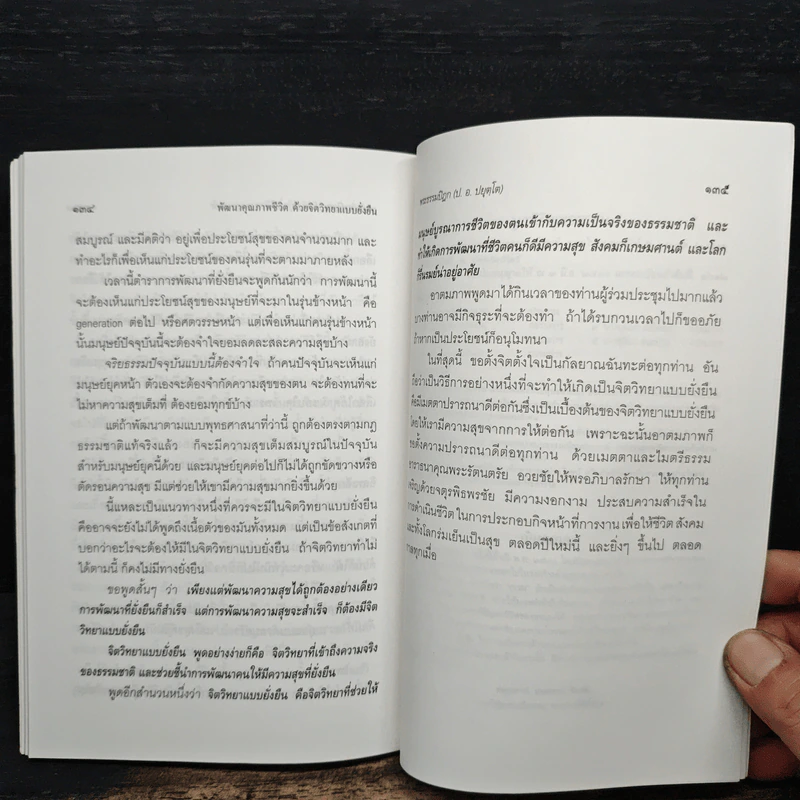 ๑๓๔ พัฒนาคุณภาพชีวิต ด้วยจิตวิทยาแบบยั่งยืน
สมบูรณ์ และมีคติว่า อยู่เพื่อประโยชน์สุขของคนจำนวนมาก และ
ทำอะไรก็เพื่อเห็นแก่ประโยชน์สุขของคนรุ่นที่จะตามมาภายหลัง
เวลานี้ตำราการพัฒนาที่ยั่งยืนจะพูดกันนักว่า การพัฒนานี้
จะต้องเห็นแก่ประโยชน์สุขของมนุษย์ที่จะมาในรุ่นข้างหน้า คือ
generation ต่อไป หรือศตวรรษหน้า แต่เพื่อเห็นแก่คนรุ่นข้างหน้า
นั้นมนุษย์ปัจจุบันนี้จะต้องจำใจยอมลดละสละความสุขบ้าง
จริยธรรมปัจจุบันแบบนี้ต้องจำใจ ถ้าคนปัจจุบันจะเห็นแก่
มนุษย์ยุคหน้า ตัวเองจะต้องจำกัดความสุขของตน จะต้องทนที่จะ
ไม่หาความสุขเต็มที่ ต้องยอมทุกข์บ้าง
แต่ถ้าพัฒนาตามแบบพุทธศาสนาที่ว่านี้ ถูกต้องตรงตามกฎ
ธรรมชาติแท้จริงแล้ว ก็จะมีความสุขเต็มสมบูรณ์ในปัจจุบัน
สำหรับมนุษย์ยุคนี้ด้วย และมนุษย์ยุคต่อไปก็ไม่ได้ถูกขัดขวางหรือ
ตัดรอนความสุข มีแต่ช่วยให้เขามีความสุขมากยิ่งขึ้นด้วย
นี้แหละเป็นแนวทางหนึ่งที่ควรจะมีในจิตวิทยาแบบยั่งยืน
คืออาจจะยังไม่ได้พูดถึงเนื้อตัวของมันทั้งหมด แต่เป็นข้อสังเกตที่
บอกว่าอะไรจะต้องให้มีในจิตวิทยาแบบยั่งยืน ถ้าจิตวิทยาทำไม่
ได้ตามนี้ ก็คงไม่มีทางยั่งยืน
ขอพูดสั้นๆ ว่า เพียงแต่พัฒนาความสุขได้ถูกต้องอย่างเดียว
การพัฒนาที่ยั่งยืนก็สำเร็จ แต่การพัฒนาความสุขจะสำเร็จ ก็ต้องมีจิต
วิทยาแบบยั่งยืน
จิตวิทยาแบบยั่งยืน พูดอย่างง่ายก็คือ จิตวิทยาที่เข้าถึงความจริง
ของธรรมชาติ และช่วยชี้นำการพัฒนาคนให้มีความสุขที่ยั่งยืน
พูดอีกสำนวนหนึ่งว่า จิตวิทยาแบบยั่งยืน คือจิตวิทยาที่ช่วยให้
พระธรรมปิฎก (ป. อ. ปยุตฺโต) ๑๓๕
มนุษย์บูรณาการชีวิตของตนเข้ากับความเป็นจริงของธรรมชาติ และ
ทำให้เกิดการพัฒนาที่ชีวิตคนก็ดีมีความสุข สังคมก็เกษมศานต์ และโลก
ก็รื่นรมย์น่าอยู่อาศัย
อาตมภาพพูดมาได้กินเวลาของท่านผู้ร่วมประชุมไปมากแล้ว
บางท่านอาจมีกิจธุระที่จะต้องทำ ถ้าได้รบกวนเวลาไปก็ขออภัย
ถ้าหากเป็นประโยชน์ก็อนุโมทนา
ในที่สุดนี้ ขอตั้งจิตตั้งใจเป็นกัลยาณฉันทะต่อทุกท่าน อัน
ถือว่าเป็นวิธีการอย่างหนึ่งที่จะทำให้เกิดเป็นจิตวิทยาแบบยั่งยืน
คือมีเมตตาปรารถนาดีต่อกันซึ่งเป็นเบื้องต้นของจิตวิทยาแบบยั่งยืน
โดยให้เรามีความสุขจากการให้ต่อกัน เพราะฉะนั้นอาตมภาพก็
ขอตั้งความปรารถนาดีต่อทุกท่าน ด้วยเมตตาและไมตรีธรรม
อาราธนาคุณพระรัตนตรัย อวยชัยให้พรอภิบาลรักษา ให้ทุกท่าน
เจริญด้วยจตุรพิธพรชัย มีความงอกงาม ประสบความสำเร็จใน
การดำเนินชีวิต ในการประกอบกิจหน้าที่การงาน เพื่อให้ชีวิต สังคม
และทั้งโลกร่มเย็นเป็นสุข ตลอดปีใหม่นี้ และยิ่งๆ ขึ้นไป ตลอด
กาลทุกเมื่อ